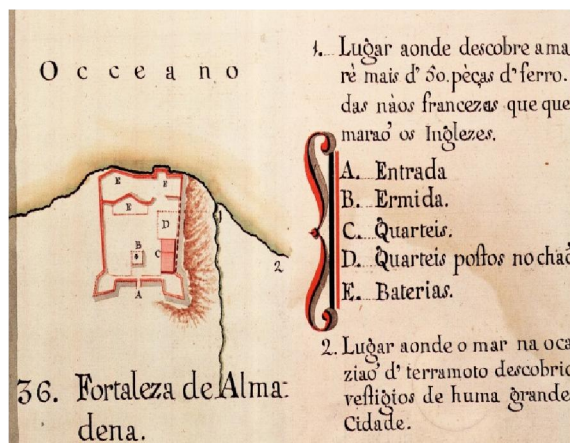 Occeano
1. Lugar aonde descobre a ma
rè mais d' 50. pèças d' ferro.
das nàos francezas que que
maraõ os Inglezes.
A. Entrada
B. Ermida.
C. Quarteis.
D. Quarteis postos no chaõ
E. Baterias.
2. Lugar aonde o mar na oca
ziaõ d' terramoto descobrio
vestigios de huma grande
Cidade.
E E
E
D
B C
A
1
2
36. Fortaleza de Alma:
dena.